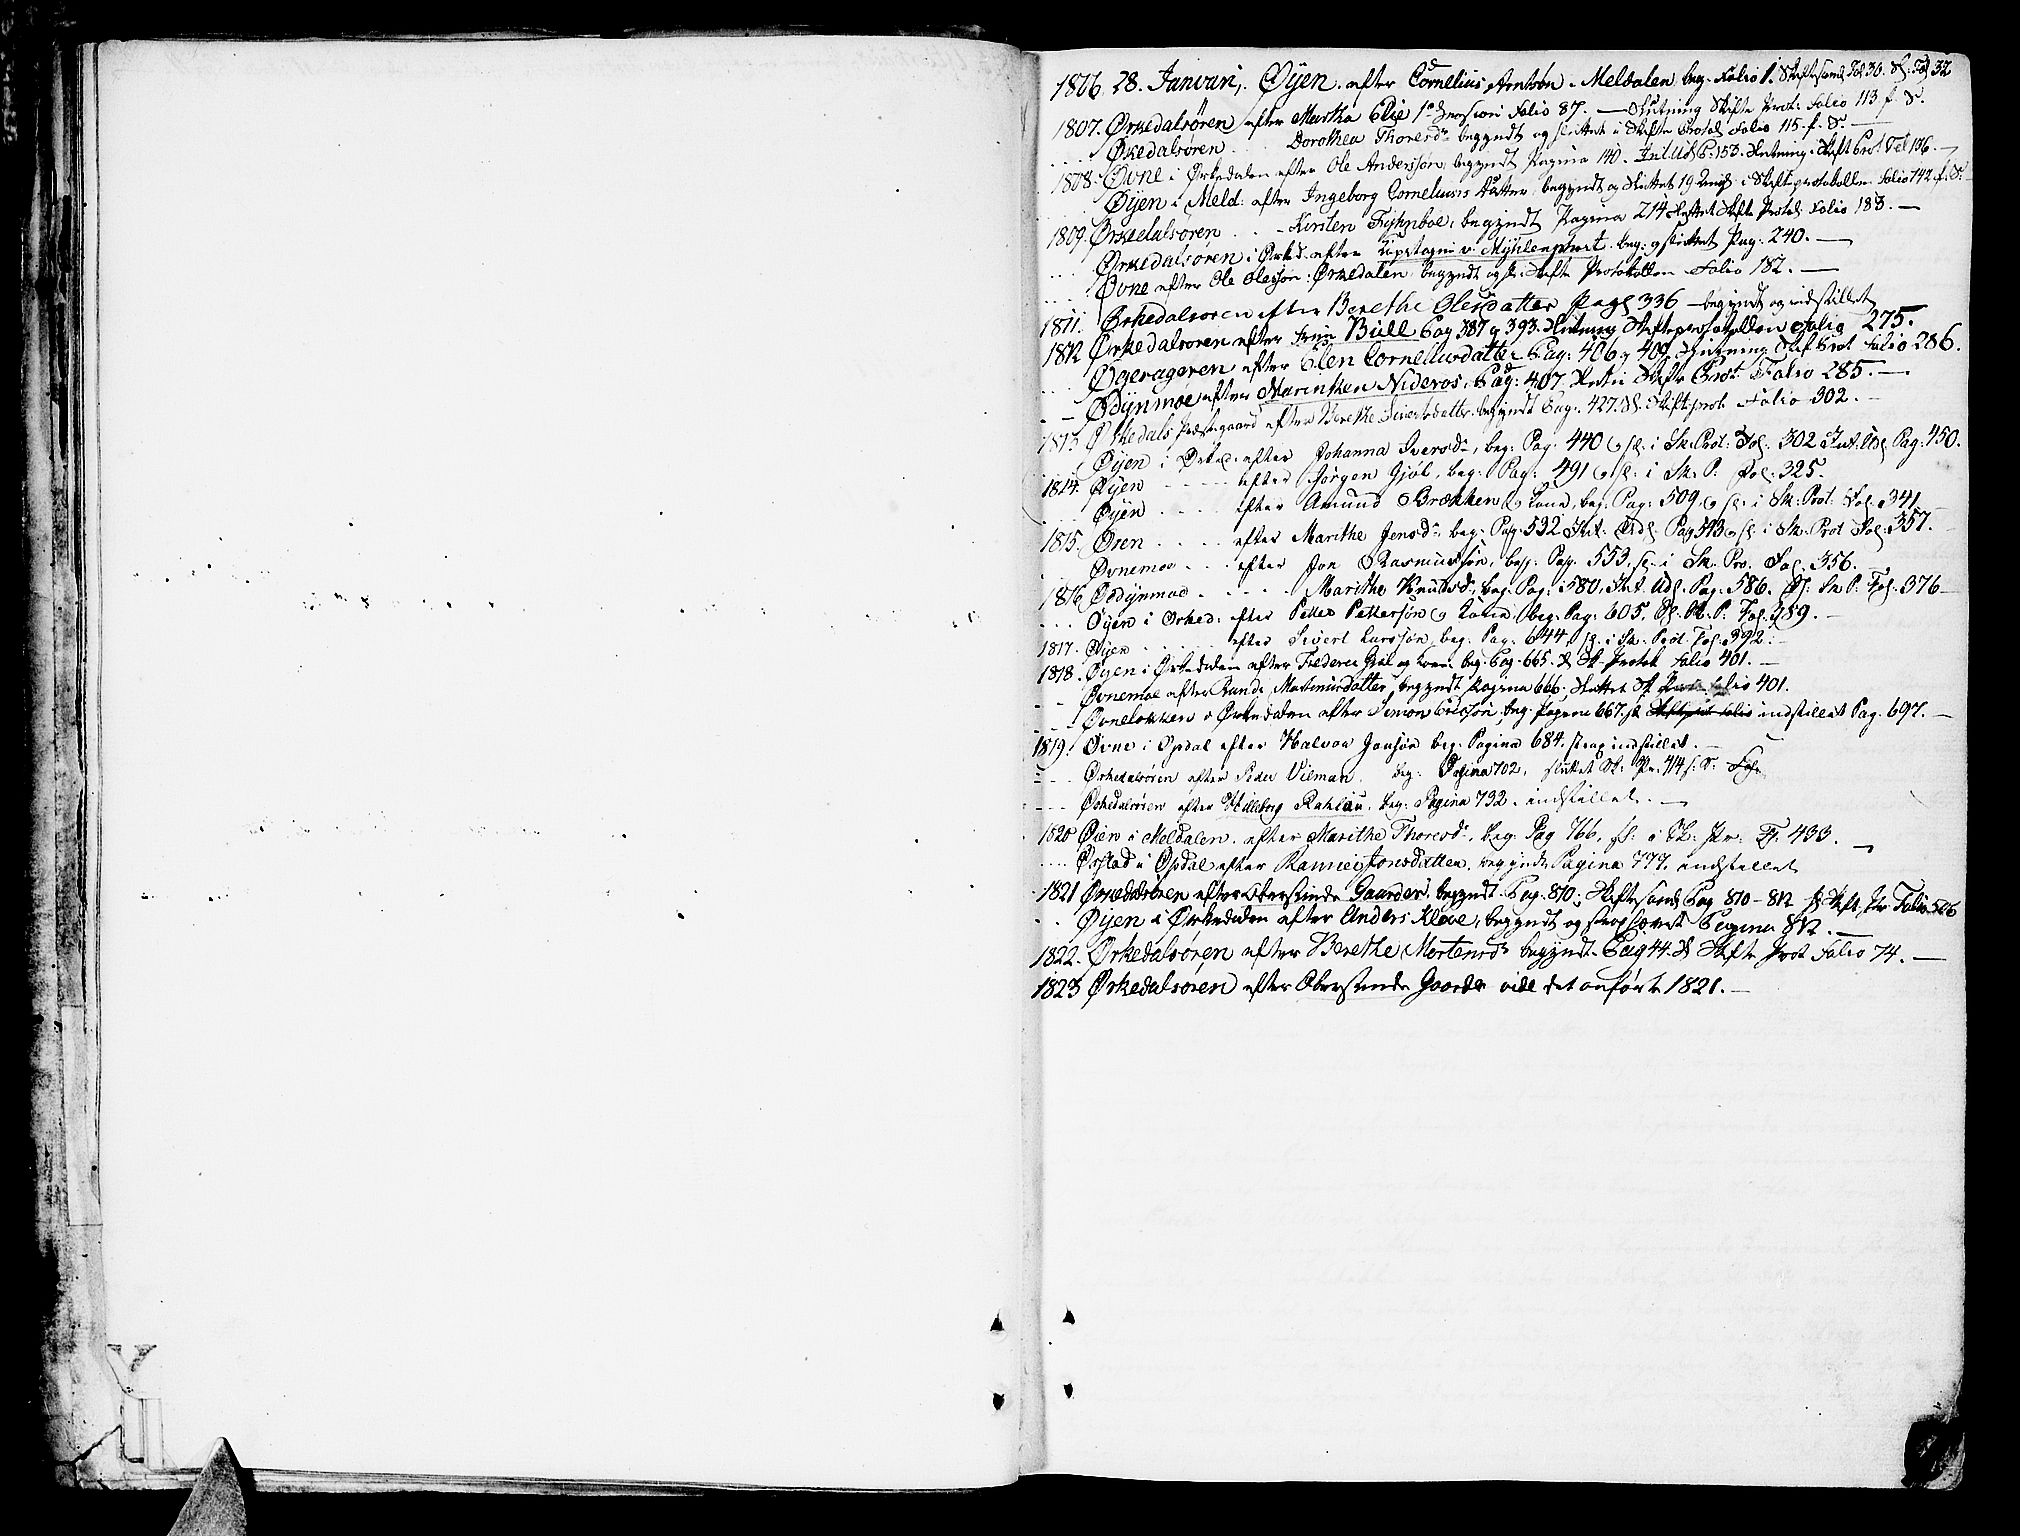 1806 28. Januari, Øÿen. after Cornelius Arntsøn. Meldalen beg. Folio 1. Skiftesaml Fol 30. Sl: Fol 32
1807. Ørkedalsøren after Martha Elie Folio 87. — Slutning Skifte Prot: Folio 113 f. S.
.... Økedalsøren ... Dorothea Thoresdr begyndt og sluttet i Skifte Protol Folio 115. f. S. —
1808. Øvne i Ørkedalen after Ole Anderssøn, begyndt Pagina 140. Int: Uds P: 153. Slutning i Skift Prot Fol 136. —
Øÿen i Meld: after Ingeborg Cornelius Datter, begyndt og sluttet 19 i Skifteprotokollen Folio 142. f. S. —
1809. Ørkedalsøren ... Kirsten begyndt Pagina 214 sluttet Skifte Protol Folio 183. —
.... Ørkedalsøren i Ørked. after v: Mÿhlenphort. beg: og sluttet Pag: 240. —
.... Øvne after Ole Olessøn: Ørkedalen begyndt og sl: Skifte Protokollen Folio 182. —
1811. Ørkedalsøren after Berethe Olesdatter Pag 336 — begyndt og indstillet
1812 Ørkedalsøren after Frue Bull Pag 387 g 393. Slutning Skifteprotokollen Folio 275.
... Øÿerageren after Elen Corneliusdatter Pag: 406 og 409 Slutning Skift Prot Folio 286.
... Ødÿnmoe after Marinken Nideros, Pag: 407 Skifte Prot. Folio 285. —
1813. Ørkedals Præstegaard after Berethe Siversdatter begyndt Pag: 427. Sl: Skifteprot Folio 302. —
... Øÿen i Ørked. after Johanna Iversdr, beg: Pag: 440 og sl: i Sk: Prot: Fol: 302 Int. Uds: Pag: 450.
1814. Øÿen ..... after Jørgen Gjøl, beg: Pag: 491 og sl: i Sk: P: Fol: 325.
... Øÿen ..... after Amund Brækken og Kone, beg: Pag: 509 og sl: i Sk: Prot: Fol: 341.
1815. Øren ..... after Marithe Jensdr, beg: Pag: 532 Int: Uds: Pag 543 og sl: i Sk: Prot Fol: 357. —
... Øvnemoe .... after Jon Rasmussøn, beg: Pag: 553, sl: i Sk: Pro. Fol. 356.
1816 Ødÿnmoe ...... Marithe Knudsdr, beg: Pag: 580, Int. Uds: Pag: 586. Sl: Sk P: Fol: 376 —
.... Øÿen i Orked: after Petter Pettersøn og Kone, beg: Pag: 605, Sl: Sk: P: Fol: 389. —
1817. Øÿen ....... after Sivert Larssøn, beg: Pag: 644, sl: i Sk: Prot: Fol: 392. —
1818. Øÿen i Ørkedalen after Frederic Gjøl og Kone. beg: Pag: 665. Sl Sk-Protok Folio 401. —
... Øvnemoe after Rundi Mortensdatter, begyndt Pagina 666, sluttet Sk Prot. Folio 401.
... Øvneløkken i Ørkedalen after Simon Ericssøn, beg. Pagina 667. sl Skifteprot Folio indstillet Pag. 697. —
1819. Øvne i Opdal after Halvor Jonssøn beg: Pagina 684. strax indstillet. —
.... Ørkedalsøren after Peder Vilman. beg: Pagina 702, sluttet Sk: Pr: 414 f: S: Fol:
.... Ørkedalsøren after Hilleborg Rahlau. beg: Pagina 732. indstillet. —
1820 Øien i Meldalen. after Marithe Thoresdr, beg: Pag 766, sl: i Sk: Pr: Fl: 433. —
.... Ørstad i Opdal after Rannei Jonsdatter, begyndt Pagina 777. indstillet
1821 Ørkedalsøren after Oberstinde Gaarder, begyndt Pag. 810; Skiftesaml Pag 810 - 812 Sl Skift Pr Folio 506
.. Øÿen i Ørkedalen after Anders Kleve, begyndt og strax Pagina 812. —
1822. Ørkedalsøren after Berethe Mortensdr begyndt Pag 44. Sl Skifte Prot Folio 74. —
1823 Ørkedalsøren after Oberstinde Gaarder vide det anførte 1821. —